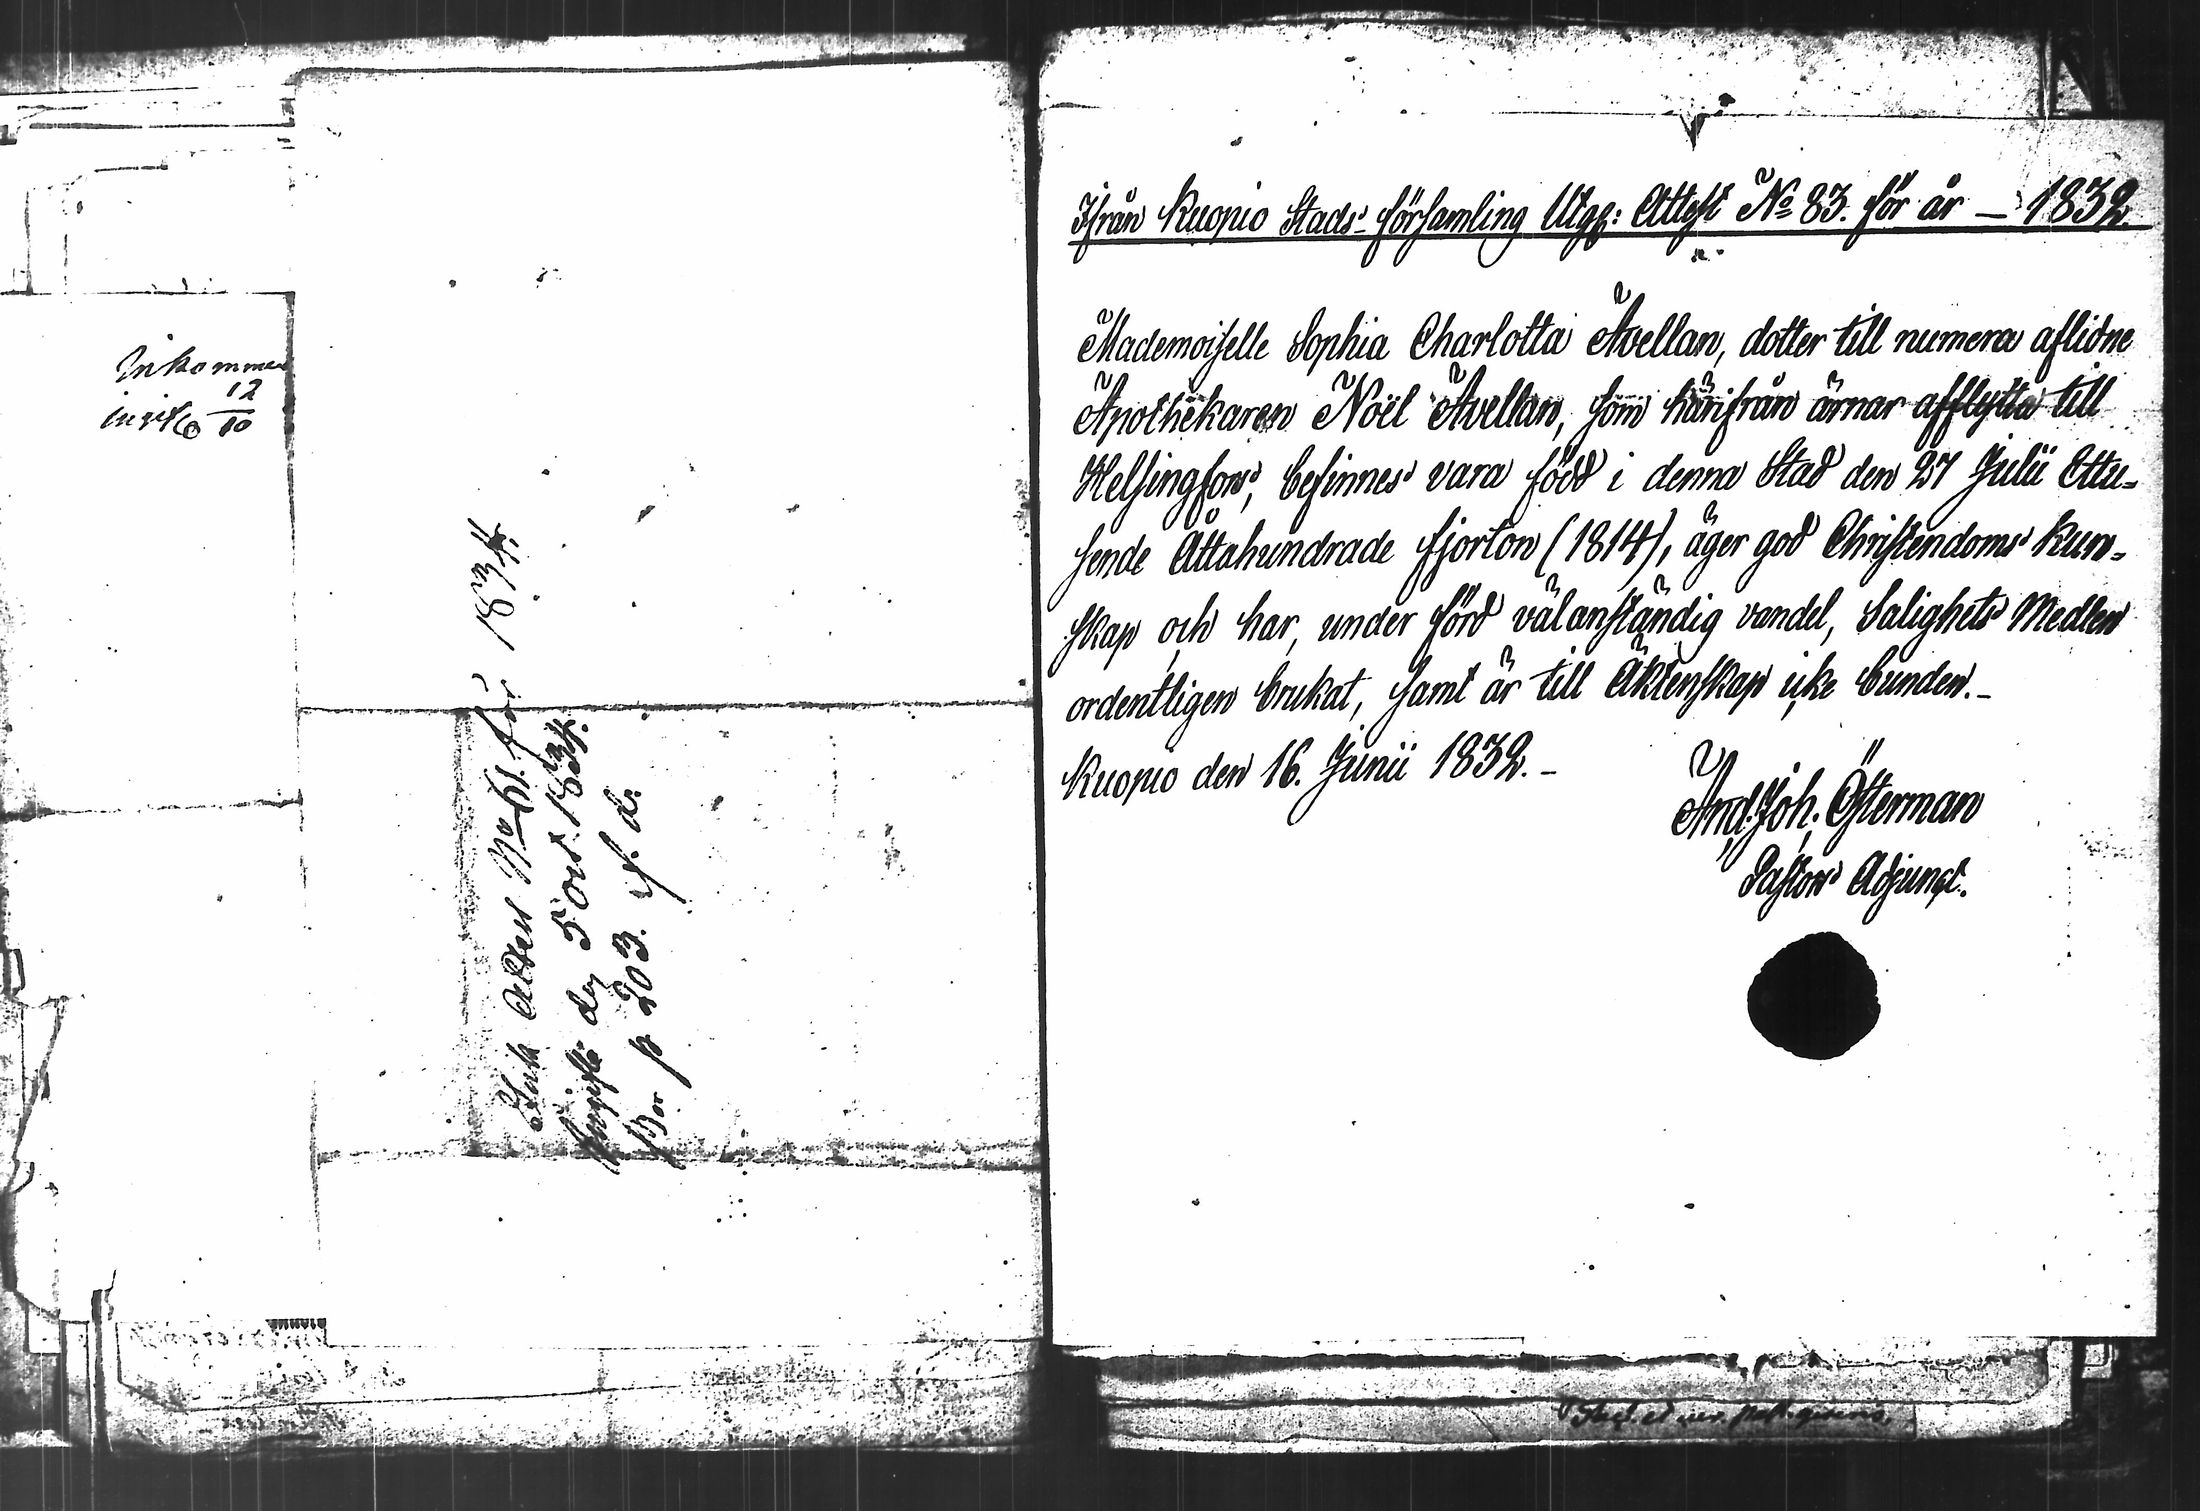 Inkommen
12
10
Inak Attest No 61. för 1834.
den 5 Oct. 1834.
Bor p 203. f. d.
Ifrån Kuopio Stads-församling Utgf: Attest No 83. för år — 1832.
Mademoiselle Sophia Charlotta Avellan, dotter till numera aflidne
Apothekaren Noël Avellan, som härifrån ärnar afflytta till
Helsingfors, befinnes vara född i denna Stad den 27 Julii Ettu-
sende Åttahundrade fjorton (1814), äger god Christendoms kun-
skap och har, under förd välanständig vandel, Salighets Medlen
ordentligen brukat, samt är till Äktenskap icke bunden.-
Kuopio den 16. Junii 1832.-
And: Joh: Österman
Pastors Adjunct.